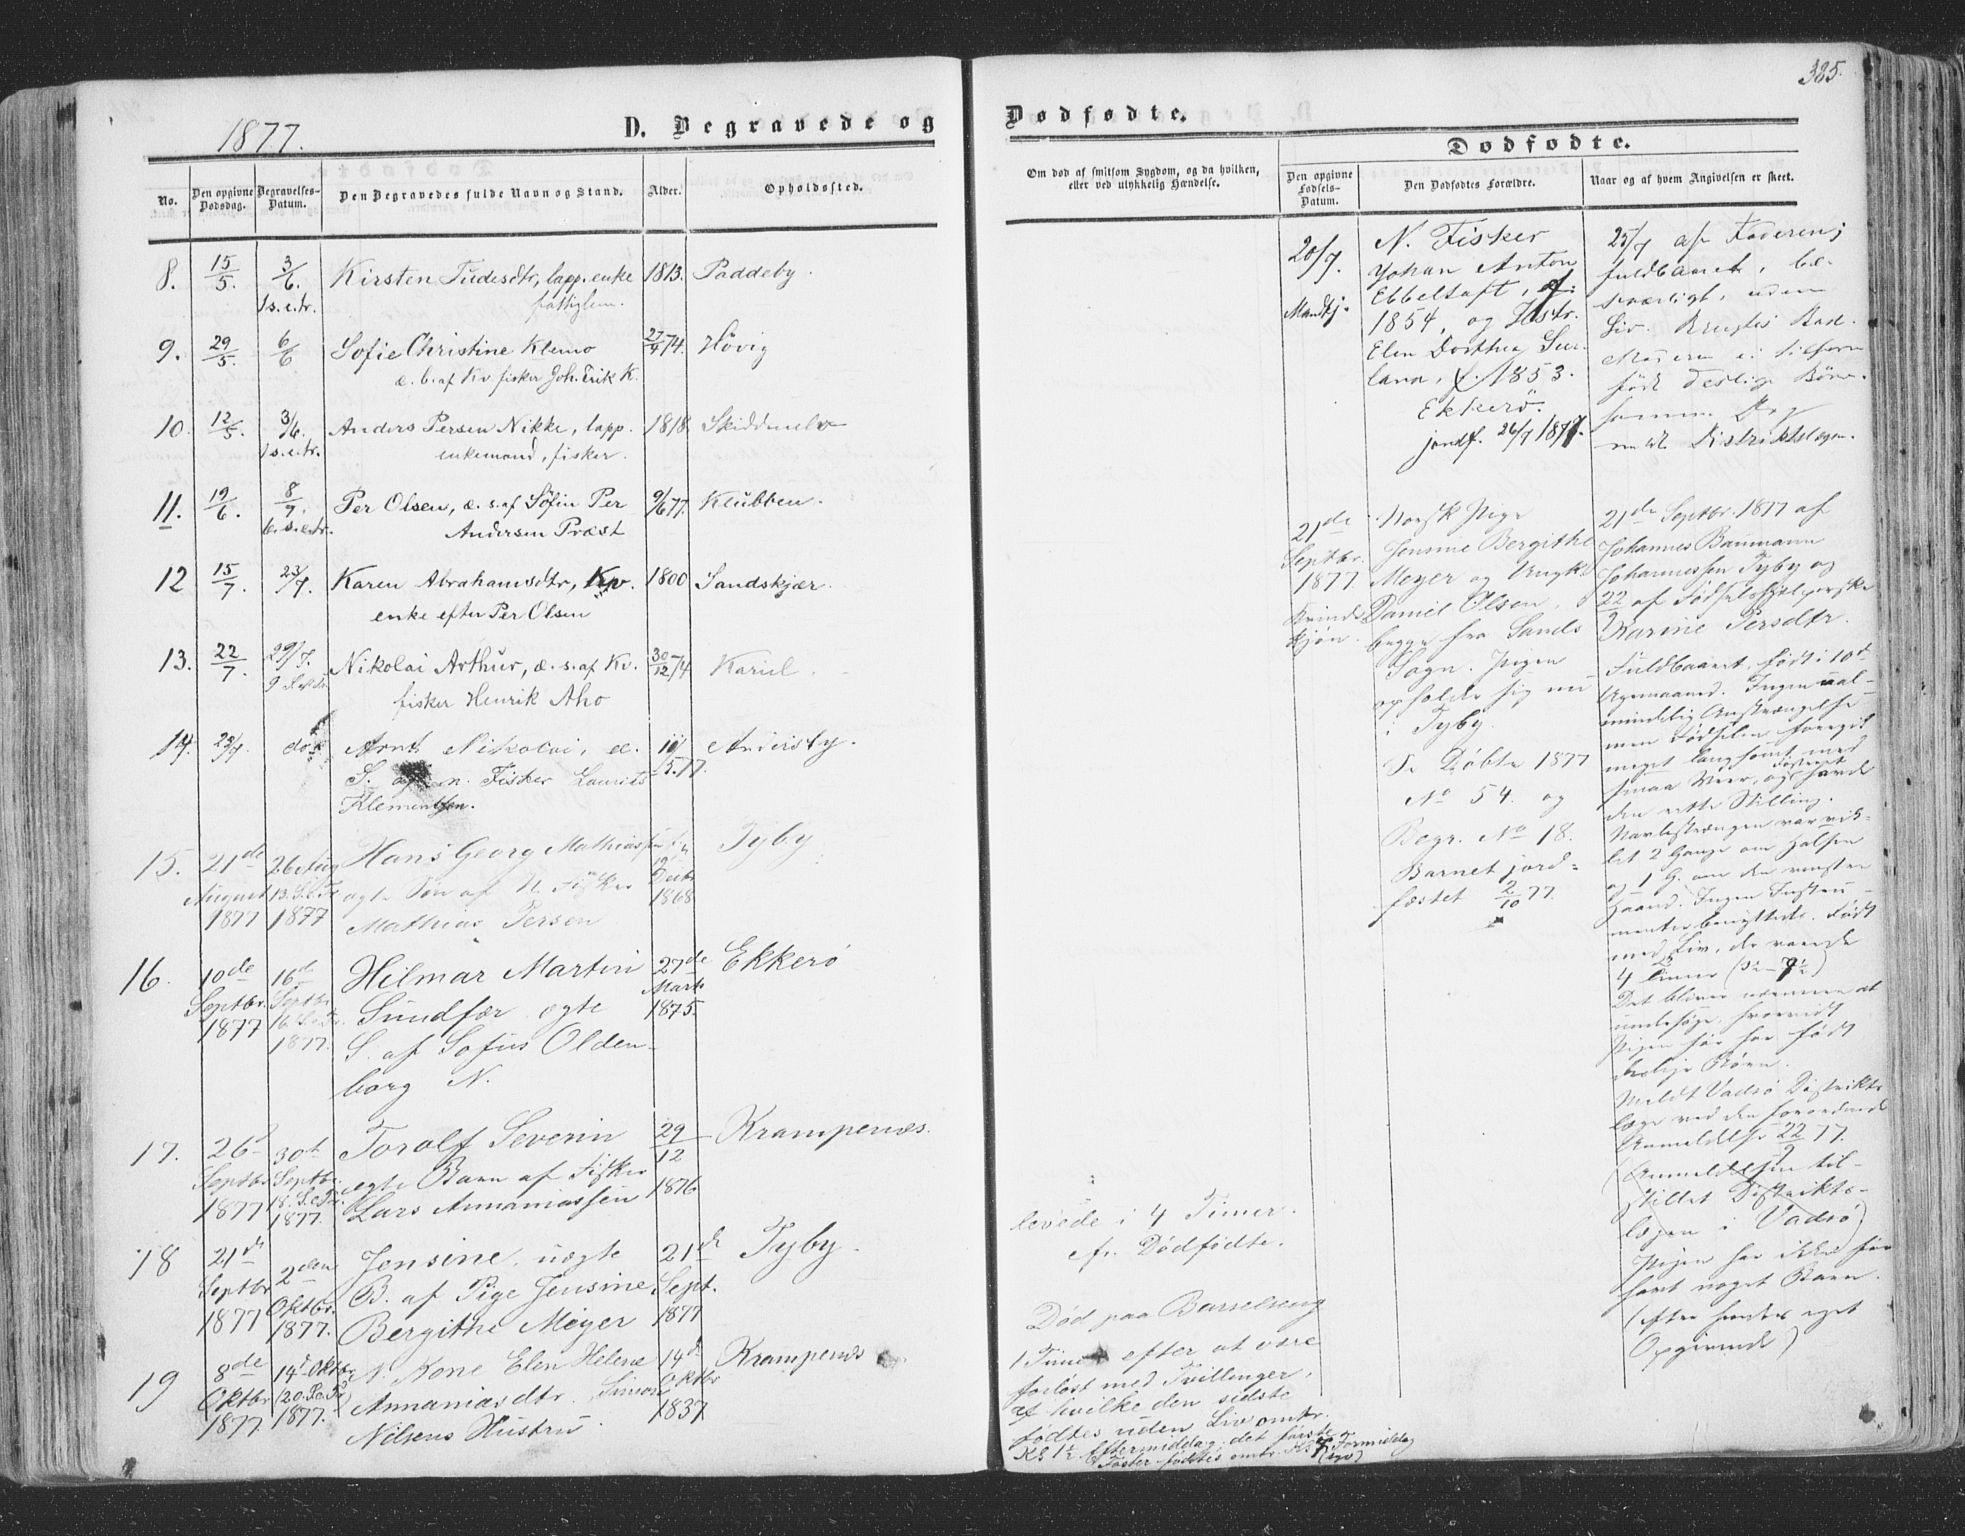 385.
1877.
D. Begravede og
Dødfødte.
Dødfødte.
No.
Den opgivne Dødsdag.
Begravelses-Datum.
Den Begravedes fulde Navn og Stand.
Alder.
Opholdssted.
Om død af smitsom Sygdom, og da hvilken,
eller ved ulykkelig Hændelse.
Den opgivne Fødsels-Datum.
Den Dødfødtes Forældre.
Naar og af hvem Angivelsen er skeet.
8. 15/5. 3/6. Kirsten Tudesdtr, lapp. enke 1813. Paddeby.
1 s.e.tr. fattiglem.
9. 29/5. 6/6 Sofie Christine Klemo 27/9 74. Høvig
æ. b. af Kv. fisker Joh. Erik K.
10. 12/5. 3/6. Anders Persen Nikke, lapp. 1818. Skiddenelv
1 s.e.tr. enkemand, fisker.
11. 19/6 8/7. Per Olsen, æ. s. af Per 9/6 77. Klubben.
6. s.e.tr. Andersen Præst
12 15/7. 23/7. Karen Abrahamsdtr, Kv. 1800 Sandskjær.
enke efter Per Olsen
13. 22/7. 29/7. Nikolai Arthur, æ. s. af Kv. 30/12 74 Kariel.
fisker Henrik Aho
14. do Arnt Nikolai, æ. 11/5.77. Andersby.
S. af n. Fisker Laurits
Klementsen.
15. 21de 26 Aug Hans Georg Mathiassen Tyby
August 13. S.e.Tr. ægte Søn af N. Fisker 1868
1877 1877 Mathias Persen
16. 10de 16d Hilmar Martin 27de Ekkerø
Septbr. Septbr. Sundfær ægte Marts
1877 16 S.e.Tr. S. af Sofus Olden- 1875.
1877. borg N.
17. 26d 30t Torolf Severin 29/12 Krampenæs.
Septbr Septbr. ægte Barn af Fisker 1876
1877 18. S.e.Tr. Lars Annaniassen
1877.
18 21de 2den Jensine, uægte 21de Tyby.
Septbr Oktbr. B. af Pige Jensine Sept.
1877 1877. Bergithe Meyer 1877
19 8de 14d Oktbr N. Kone Elen Helene 14de Krampenæs
Oktbr (20. S.e.Tr) Annaniasdtr. Simon Oktbr
1877. 1877. Nilsens Hustru. 1837
levede i 4 Timer.
cfr. Dødfødte.
Død paa Barselseng
1 Time efter at være
forløst med Tvillinger,
af hvilke den sidste
fødtes uden Liv omtr.
Kl. 1½ Eftermiddag; det første
Foster fødtes omtr. Kl. 7 Formiddag
(syv)
20/7.
Mandkj.
N. Fisker
Johan Anton
Ebbeltoft, f.
1854, og Hstr.
Elen Dorthea
f. 1853.
Ekkerø.
jordf. 26/7 1877.
25/7 af Faderen;
fuldbaaret, be-
sværligt, uden
Liv. Brugtes Bad.
Moderen ei tilforn
født deslige Børn.
Distriktslægen.
21de
Septbr.
1877.
Kvinde
kjøn.
Norsk Pige
Jensine Bergithe
Meyer og Ungk.
Daniel Olsen,
begge fra Sands
Sogn. Pigen
opholder sig nu
i Tyby.
Se Døbte 1877
No 54. og
Begr. No 18.
Barnet jord-
fæstet 2/10 77.
21de Septbr. 1877 af
Johannes Baumann
Johannessen Tyby og
22/9 af Fødselshjælperske
Karine Persdtr.
Fuldbaaret, født i 10de
Ingen ual-
mindelig Anstrængelse
men Fødselen foregik
meget langsomt med
smaa Veer, og Fosteret havde
den rette Stilling.
Navlestrængen var vik-
let 2 Gange om Halsen
og 1 G. om den venstre
Haand. Ingen Instru-
menter benyttede. Født
med Liv, da varede
4 Timer
Det bliver nærmere at
undersøge, hvorvidt
Pigen før har født
deslige Børn.
Meldt Vadsø Distrikts
læge ved den forordnede
Anmeldelse 22/9 77.
(Anmeldelsen til-
stillet Distrikts-
lægen i Vadsø)
Pigen har ikke før
havt noget Barn.
(efter hendes eget
Opgivende)